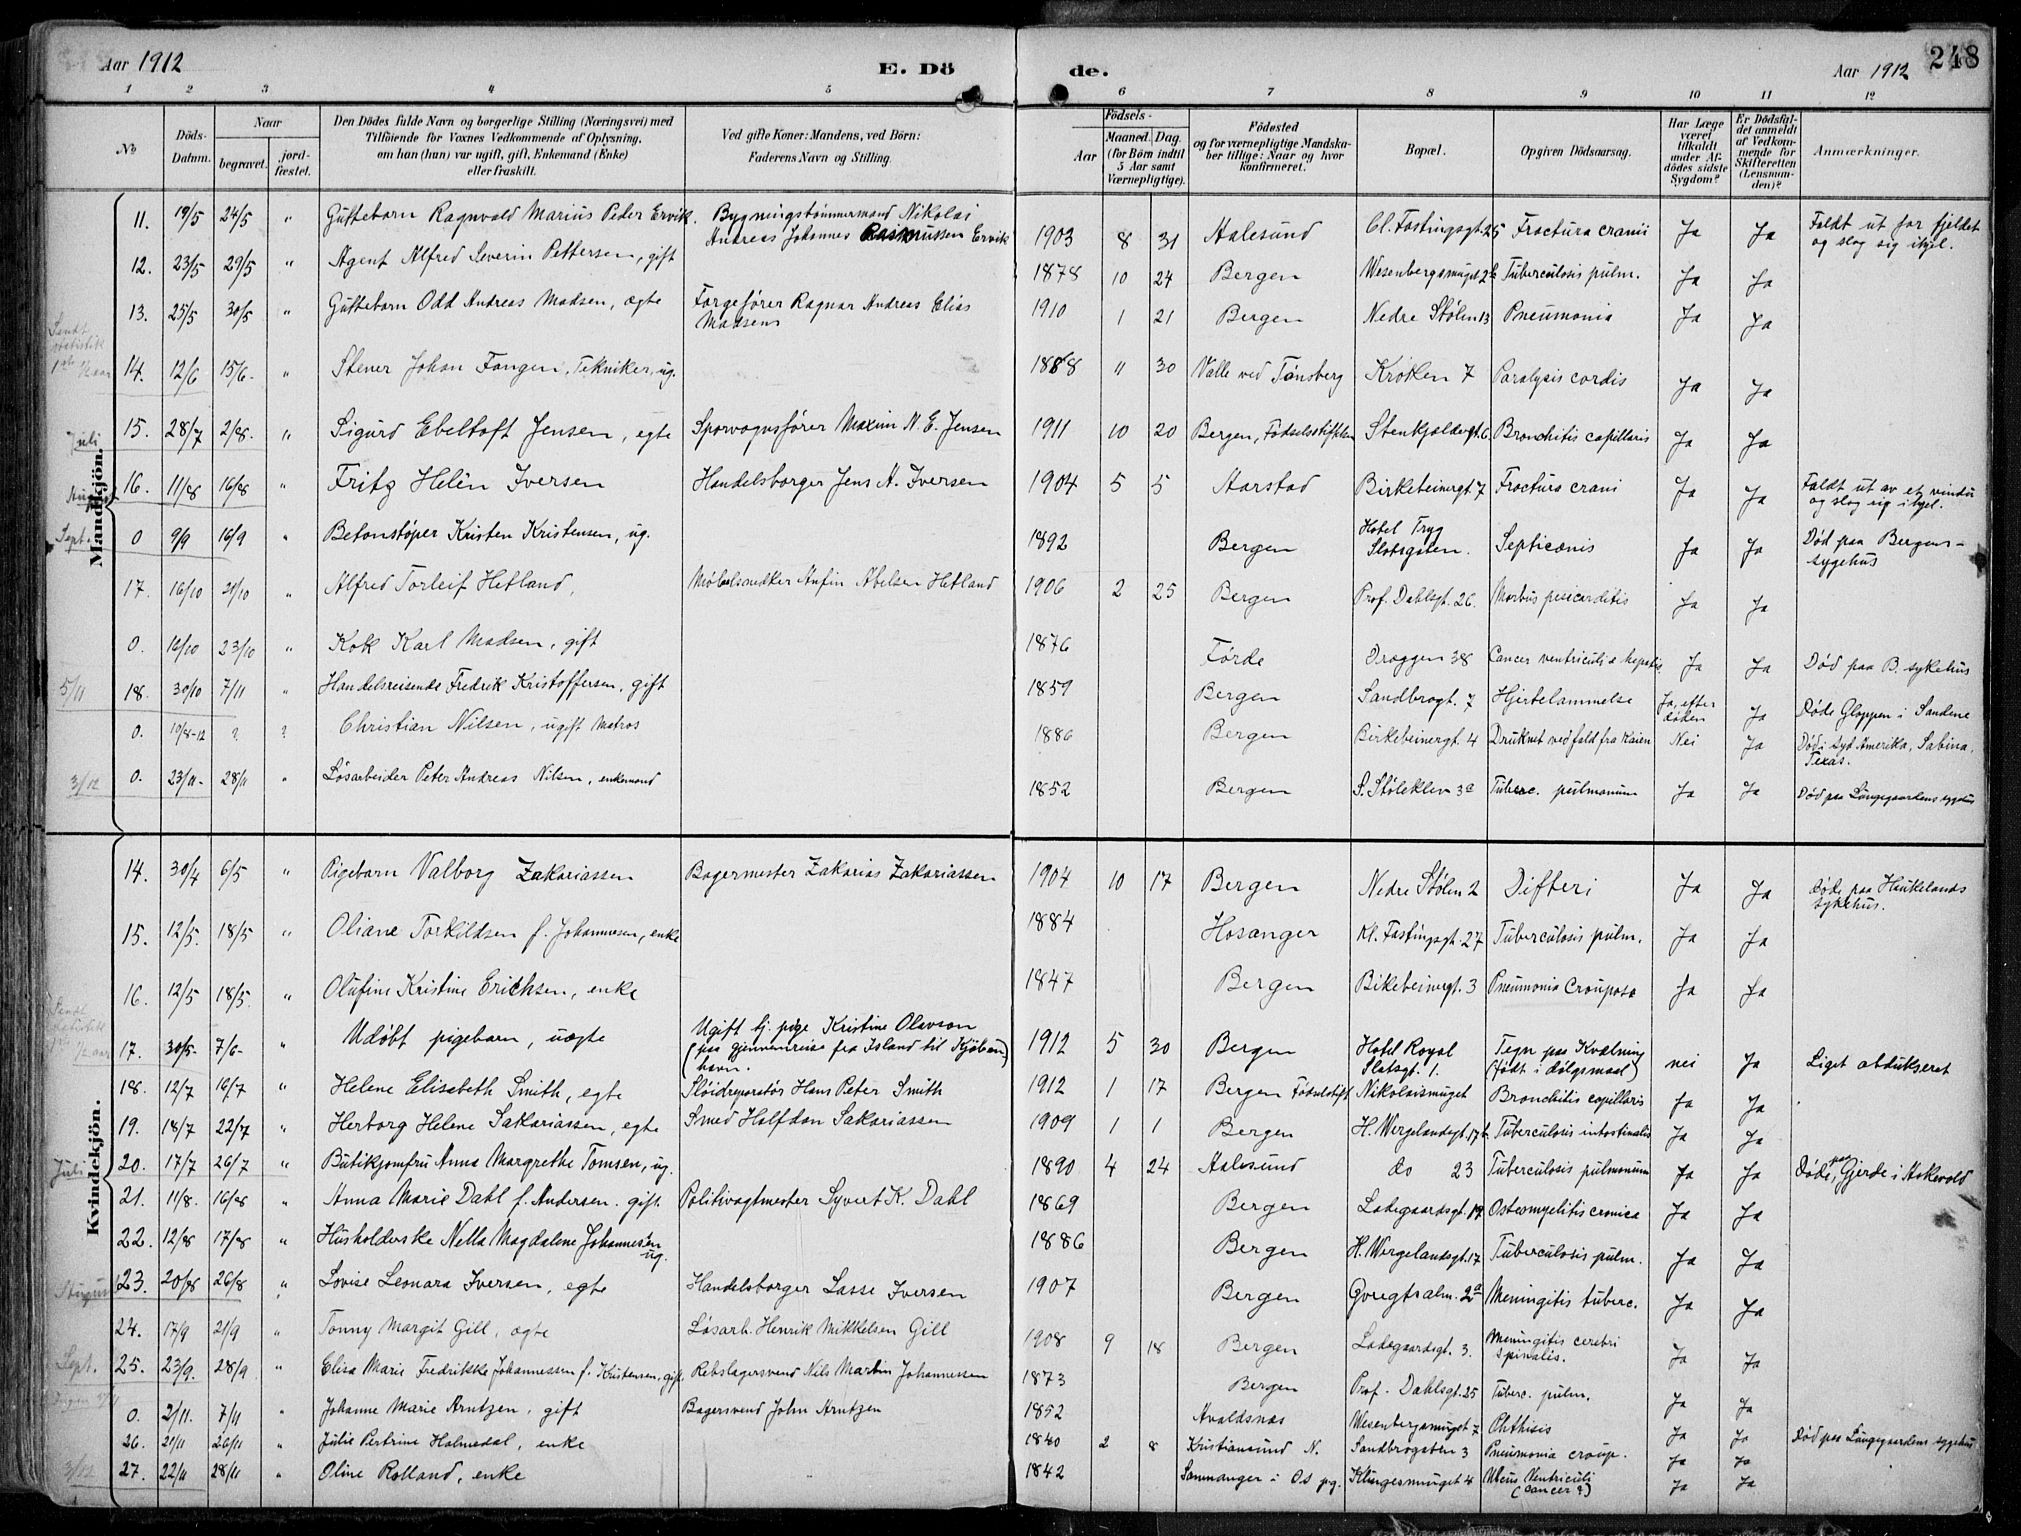 Aar 1912 E. Dö de. Aar 1912 248
1 2 3 4 5 6 7 8 9 10 11 12
No
Döds-Datum.
Naar
begravet.
jord-fæstet.
Den Dödes fulde Navn og borgerlige Stilling (Næringsvei) med
Tilföiende for Voxnes Vedkommende af Oplysning,
om han (hun) var ugift, gift, Enkemand (Enke)
eller fraskilt.
Ved gifte Koner: Mandens, ved Börn:
Faderens Navn og Stilling.
Födsels-
Aar
Maaned. Dag.
(for Börn indtil
5 Aar samt
Værnepligtige).
Födested
og for værnepligtige Mandska-
ber tillige: Naar og hvor
konfirmeret.
Bopæl.
Opgiven Dödsaarsag.
Har Læge
været
tilkaldt
under Af-
dödes sidste
Sygdom?
Er Dödsfal-
det anmeldt
af Vedkom-
mende for
Skifteretten
(Lensman-
den)?
Anmærkninger.
Mandkjön.
11. 19/5 24/5 " Gutteborn Ragnvald Marius Peder Ervik. Bygningstömmermand Nikolai
Andreas Johannes Rasmussen Ervik 1903 8 31 Aalesund Cl. Fastingsgt. 25 Fractura cranii Ja Ja Faldt ut for fjeldet
og slog sig ihjel.
12. 23/5 29/5 " Agent Alfred Severin Pettersen, gift 1878 10 24 Bergen Wesenbergsmuget 2b Tuberculosis pulm. Ja Ja
13. 25/5 30/5 " Guttebarn Odd Andreas Madsen, ægte Fargefører Ragnar Andreas Elias
Madsen 1910 1 21 Bergen Nedre Stølen 13 Pneumonia Ja Ja
Sendt
statistik
14. 12/6 15/6. " Stener Johan Fangen, Tekniker, ug. 1888 " 30 Valle ved Tønsberg Kroken 7 Paralysis cordis Ja Ja
Juli
15. 28/7 2/8. " Sigurd Ebeltoft Jensen, egte Sporvognsfører Maxim N. E. Jensen 1911 10 20 Bergen, Fødselsstiftelsen Stenkjeldergt. 6 Bronchitis capillaris Ja Ja
August
16. 11/8 16/8 " Fritz Helén Iversen Handelsborger Jens A. Iversen 1904 5 5 Aarstad Birkebeinergt. 7 Fractura crani Ja Ja Faldt ut av et vindu
og slog sig ihjel.
Sept.
0 9/9 16/9 " Betonstøper Kristen Kristensen, ug. 1892 Bergen Hotel Tryg
Slotsgaten. Septicænis Ja Ja Død paa Bergens-
sygehus
17. 16/10 21/10 " Alfred Torleif Hetland, Møbelsnedker Anfin Abelsen Hetland 1906 2 25 Bergen Prof. Dahlsgt. 26. Morbus pericarditis Ja Ja
0. 16/10 23/10 " Kok Karl Madsen, gift 1876 Førde Dreggen 38 Cancer ventriculi & hepatis Ja Ja Død paa B. sykehus
5/11
18. 30/10 7/11 " Handelsreisende Fredrik Kristoffersen, gift 1859 Bergen Sandbrogt. 7 Hjertelammelse Ja, efter
døden Ja Døde Gloppen i Sandene
0. 10/8-12 ? ? Christian Nilsen, ugift Matros 1886 Bergen Birkebeinergt. 4 Druknet ved fald fra kaien Nei Ja Død i Syd Amerika, Sabina,
Texas.
3/12
0. 23/11- 28/11 " Løsarbeider Peter Andreas Nilsen, enkemand 1852 Bergen S. Stølekleven 3c Tuberc. pulmonum Ja Ja Død paa Lungegaardens sygehus
Kvindekjön.
14. 30/4 6/5 " Pigebarn Valborg Zakariassen Bagermester Zakarias Zakariassen 1904 10 17 Bergen Nedre Stølen 2 Difteri Ja Ja Døde paa Haukelands
sykehus.
15. 12/5. 18/5 " Oliane Torkildsen f. Johannesen, enke 1884 Hosanger Kl. Fastingsgt. 27 Tuberculosis pulm. Ja Ja
16. 12/5 18/5. " Olufine Kristine Erichsen, enke 1847 Bergen Bikebeinergt. 3 Pneumonia Crouposa Ja Ja
Sendt
statistik
17. 30/5- 7/6- " Udøbt pigebarn, uægte Ugift tj. pige Kristine Olavson
(paa gjennemreise fra Island til Kjøben-
havn.) 1912 5 30 Bergen Hotel Royal
Slotsgt. 1. Tegn paa Kvælning
(født i dølgsmaal) nei Ja Liget obdukseret
18. 12/7 16/7 " Helene Elisabeth Smith, egte Sløidreparatør Hans Peter Smith 1912 1 17 Bergen Fødselstift Nikolaismuget Bronchitis capillaris Ja Ja
19. 18/7 22/7 " Herborg Helene Sakariassen, egte Smed Halfdan Sakariassen 1909 1 1 Bergen H. Wergelandsgt. 17b Tuberculosis intestinalis Ja Ja
Juli
20. 17/7 26/7 " Butikjomfru Anna Margrethe Tomsen, ug. 1890 4 24 Aalesund do 23 Tuberculosis pulmonum Ja Ja Døde paa Gjerde i Askevold
21. 11/8. 16/8 " Anna Marie Dahl f. Andersen. gift. Politivagtmester Syvert K. Dahl 1869 Bergen Ladegaardsgt. 17 Osteomyelitis cronica Ja Ja
22. 12/8 17/8 " Husholderske Nella Magdalene Johannesen
ug. 1886 Bergen H. Wergelandsgt. 17 Tuberculosis pulm. Ja Ja
August
23. 20/8 26/8 " Lovise Leonara Iversen, egte Handelsborger Lasse Iversen 1907 Bergen 2a Meningitis tuberc. Ja Ja
24. 17/9 21/9 " Tonny Margit Gill, ægte Løsarb. Henrik Mikkelsen Gill 1908 9 18 Bergen Ladegaardsgt. 3. Meningitis cerebri
spinalis. Ja Ja
Sept.
25. 23/9. 28/9 " Elisa Marie Fredrikke Johannessen f. Kristensen, gift. Rebslagersvend Nils Martin Johannessen 1873 Bergen Prof. Dahlsgt. 25 Tuberc. pulm. Ja Ja
0. 2/11. 7/11 " Johanne Marie Arntzen, gift Bagersvend John Arntzen 1852 Avaldsnæs Wesenbergsmuget 7 Phthisis Ja Ja
26. 21/11 26/11 " Julie Pertrine Holmedal, enke 1840 2 8 Kristiansund N. Sandbrogaten 3 Pneumonia croup. Ja Ja Død paa Lungegaardens sygehus
3/12
27. 22/11 28/11 " Oline Rolland, enke 1842 Sammanger i Os pg. Klingesmuget 4 Ulcus Ventriculi
(Cancer?) Ja Ja